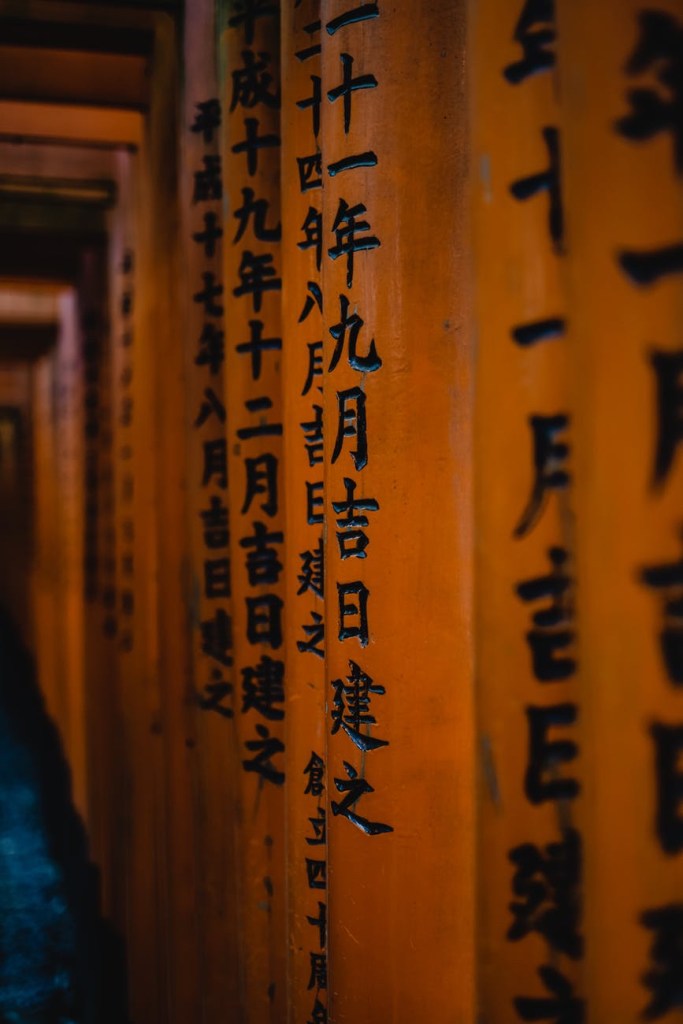 年一月吉日建
年十一月吉日建之
二十一年九月吉日建之
二十四年八月吉日建之 創立四十周年
平成十九年十二月吉日建之
平成十七年八月吉日建之